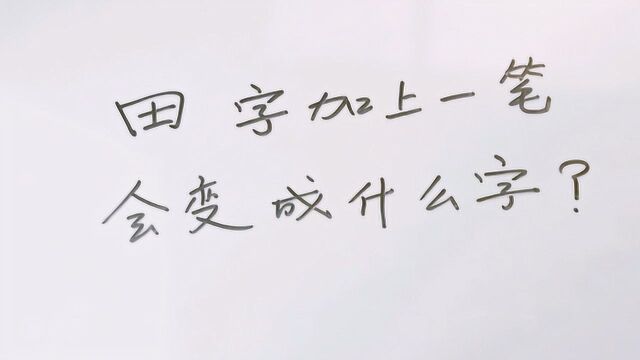 田字加上一笔
会变成什么字?